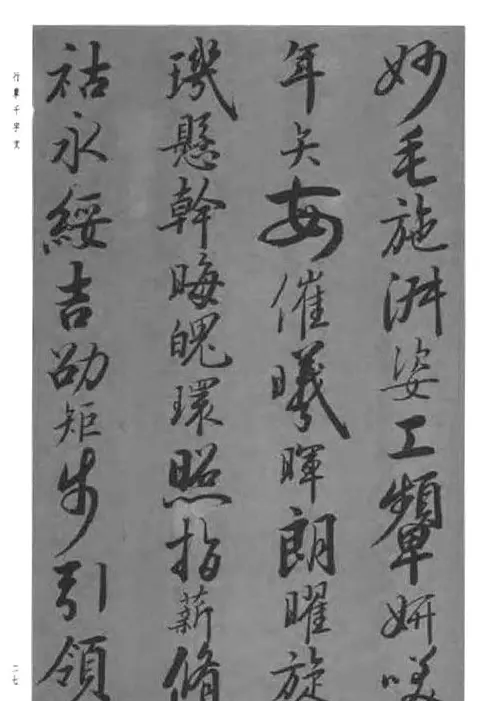 妙毛施淑姿工顰妍咲
年矢每催曦暉朗曜旋
璣懸幹晦魄環照指薪脩
祜永綏吉劭矩步引領
行草千字文
二七